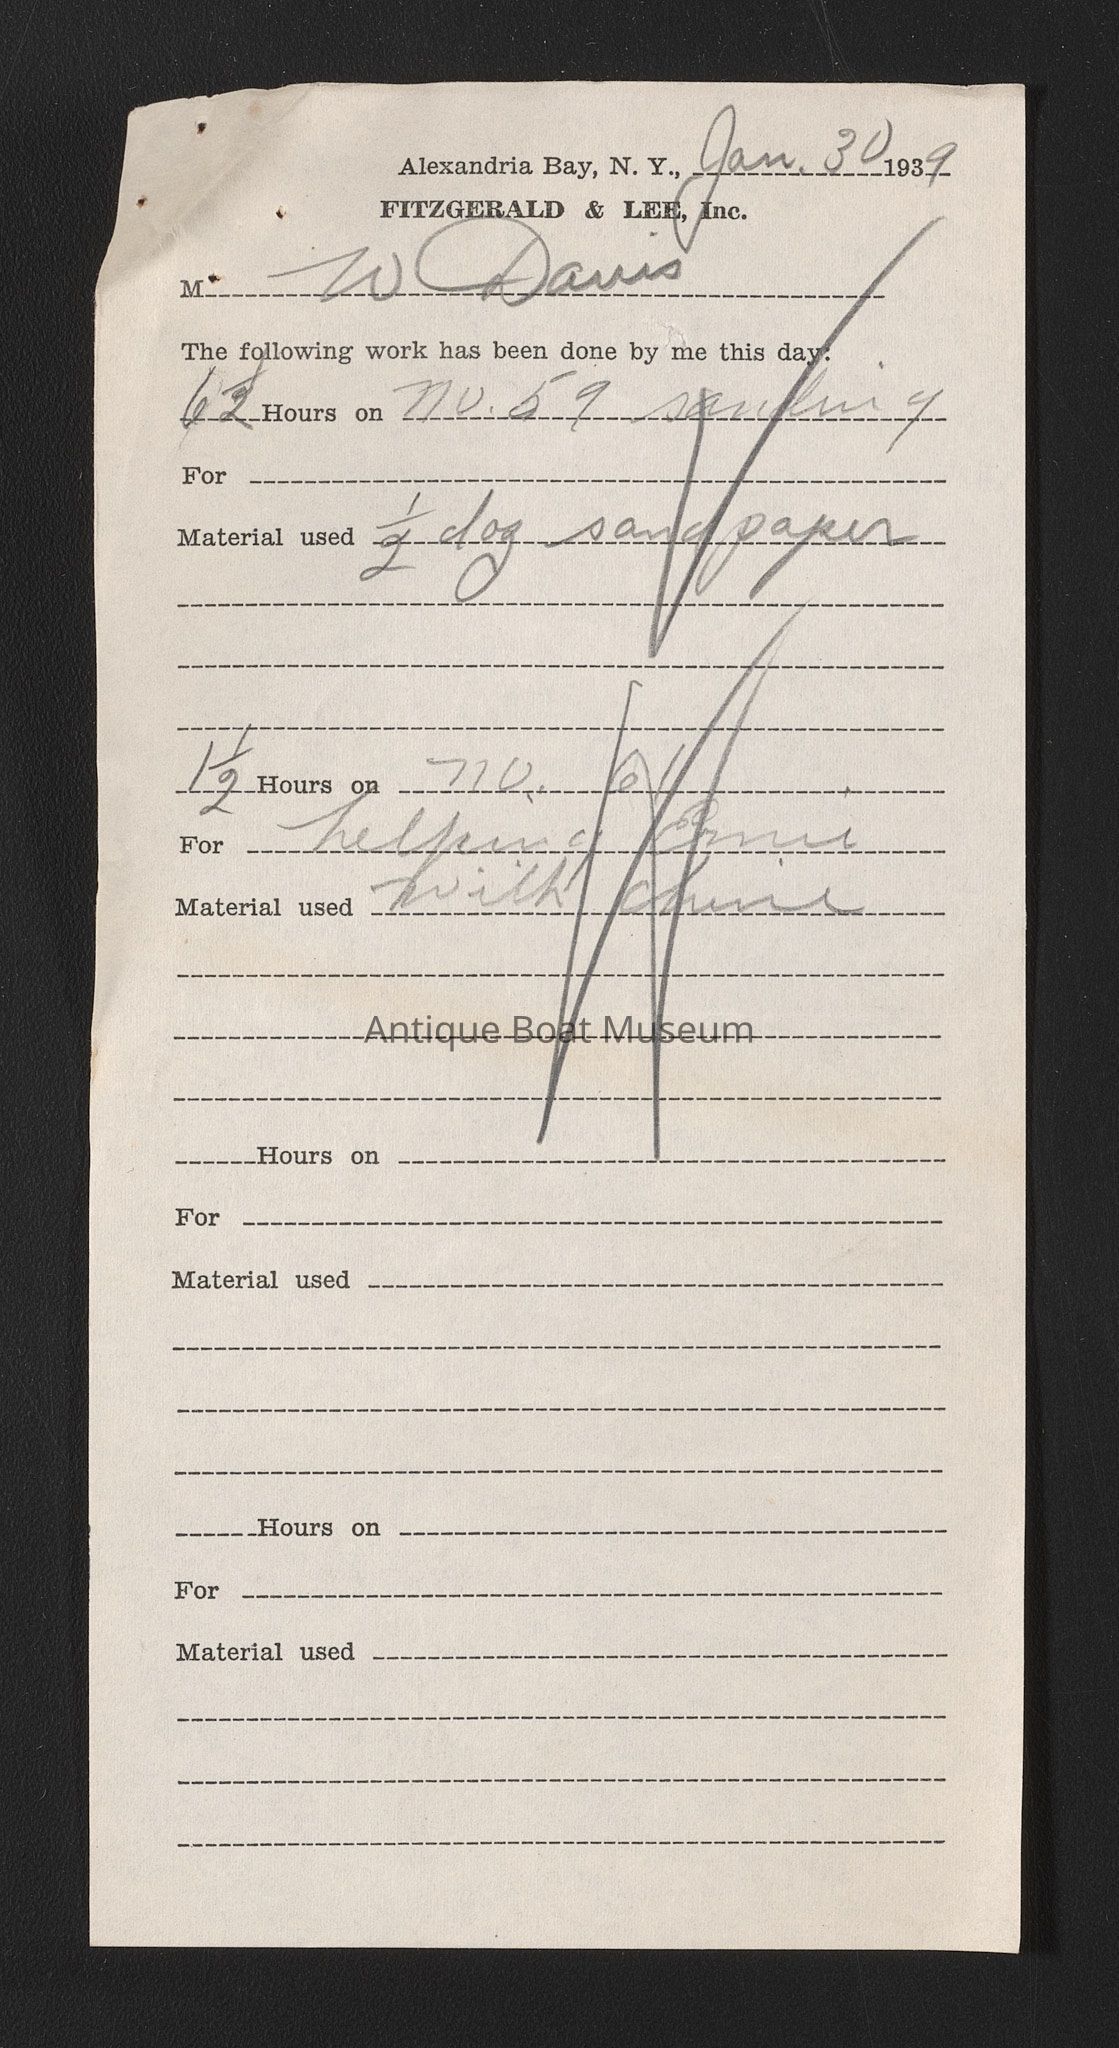 Alexandria Bay, N. Y., Jan. 30 1939
FITZGERALD & LEE, Inc.
M W Davis
The following work has been done by me this day:
6½ Hours on no. 59 sanding
For
Material used ½ dog sand paper
1½ Hours on no. 61
For helping Ernie
Material used with chine
Antique Boat Museum
Hours on
For
Material used
Hours on
For
Material used